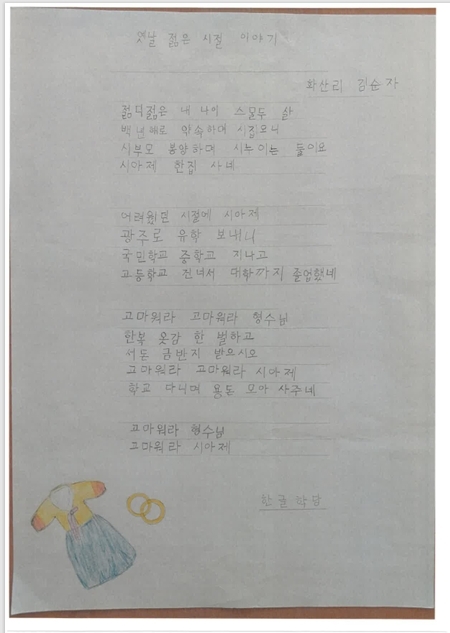 옛날 젊은 시절 이야기
화산리 김순자
젊디젊은 내 나이 스물두 살
백년해로 약속하며 시집오니
시부모 봉양하며 시누이는 둘이요
시아제 한집 사네
어려웠던 시절에 시아제
광주로 유학 보내니
국민학교 중학교 지나고
고등학교 건너서 대학까지 졸업했네
고마워라 고마워라 형수님
한복 옷감 한 벌하고
서돈 금반지 받으시오
고마워라 고마워라 시아제
학교 다니며 용돈 모아 사주네
고마워라 형수님
고마워라 시아제
한글학당